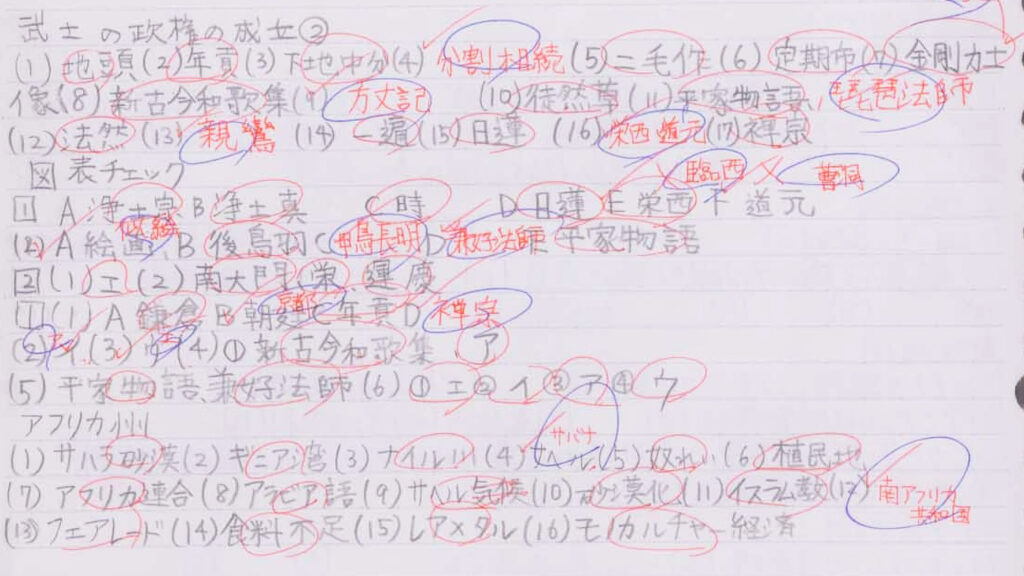 武士の政権の成立②
(1) 地頭 (2) 年貢 (3) 下地中分 (4) 分割相続 (5) 二毛作 (6) 定期市 (7) 金剛力士
像 (8) 新古今和歌集 (9) 方丈記 (10) 徒然草 (11) 平家物語、琵琶法師
(12) 法然 (13) 親鸞 (14) 一遍 (15) 日蓮 (16) 栄西 道元 (17) 禅宗
図表チェック 臨西 曹洞
1 A 浄土宗 B 浄土真 C 時 D 日蓮 E 栄西 F 道元
(2) A 絵画 似絵 B 後鳥羽 C 鴨長明 D 兼好法師 平家物語
2 (1) エ (2) 南大門 (栄) 運慶
1 (1) A 鎌倉 B 朝廷 京都 C 年貢 D 禅宗
(2) イ (3) (4) ① 新古今和歌集 ア
(5) 平家物語、兼好法師 (6) ① エ ② イ ③ ア ④ ウ
アフリカ州
(1) サハラ砂漠 (2) ギニア湾 (3) ナイル川 (4) サヘル サバナ (5) 奴れい (6) 植民地
(7) アフリカ連合 (8) アラビア語 (9) サヘル気候 (10) 砂漠化 (11) イスラム教 (12) 南アフリカ共和国
(13) フェアレード (14) 食料不足 (15) レアメタル (16) モノカルチャー経済